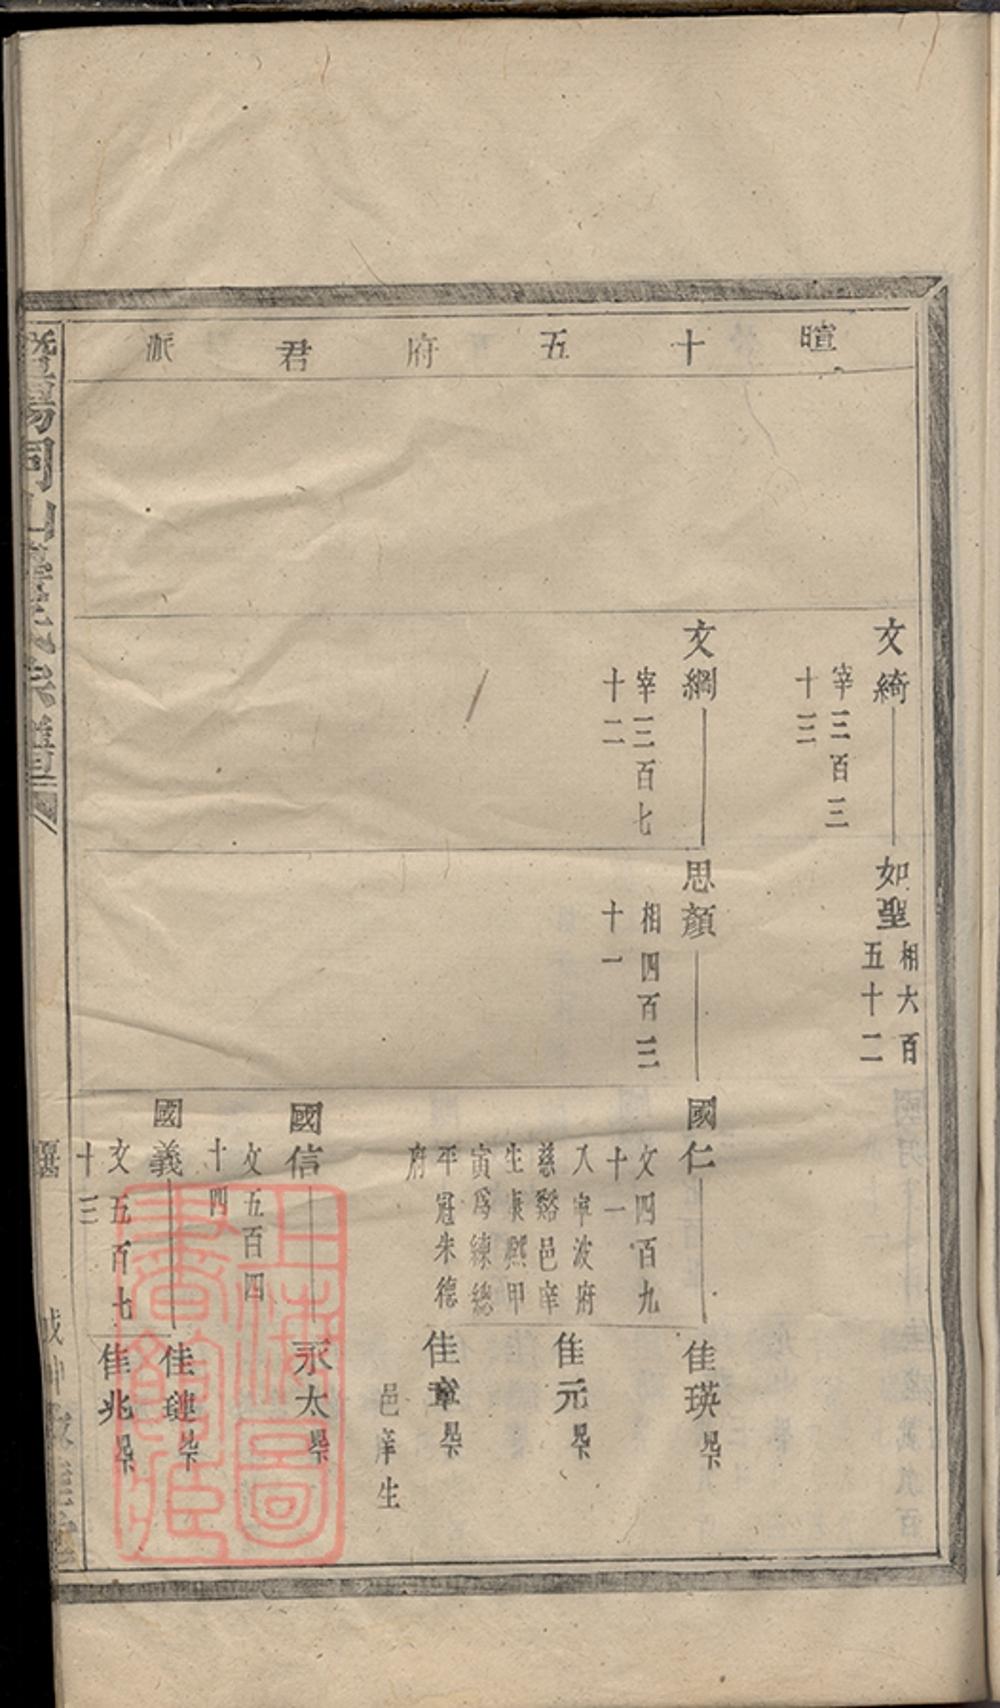 暄十五府君派
文綺
宰三百三
十三
如聖
相六百
五十二
文綱
宰三百七
十二
思顏
相四百三
十一
國仁
文四百九
十一
入寧波府
慈谿邑庠
生康熙甲
寅爲練總
平冠朱德
府
佳瑛
佳元
佳章
邑庠生
國信
文五百四
十四
永太
國義
文五百七
十三
佳璉
佳兆
上海圖
書館藏